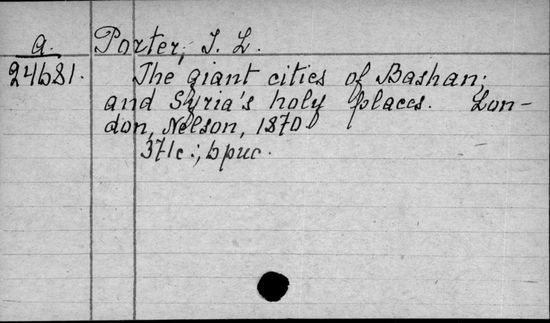 a. Porter, J. L.
24681. The giant cities of Bashan;
and Syria's holy places. Lon-
don, Nelson, 1870
371c.; врис.